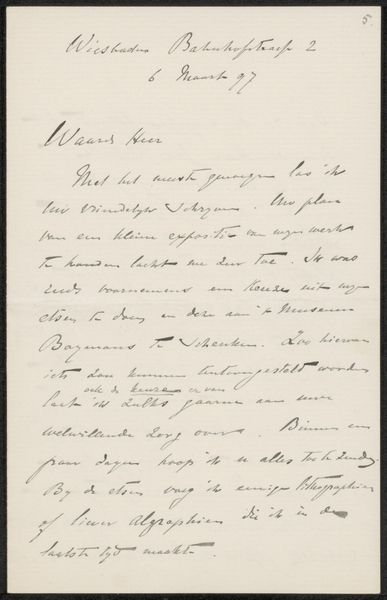 5.
Wiesbaden Bahnhofstrasse 2
6 Maart 97
Waarde Heer
Met het meeste genoegen las ik
uw vriendelijk schrijven. Uw plan
van een kleine expositie van mijn werk
te houden lacht me zeer toe. Ik was
reeds voornemens een keuze uit mijn
etsen te doen en deze aan 't Museum
Boymans te schenken. Zoo hiervan
iets zou kunnen tentoongesteld worden
ook de keuze er van
laat ik zulks gaarne aan uwe
welwillende zorg over. Binnen een
paar dagen hoop ik u alles toe te zenden
By de etsen voeg ik eenige lithographien
of liever algraphien die ik in de
laatste tyd maakte.